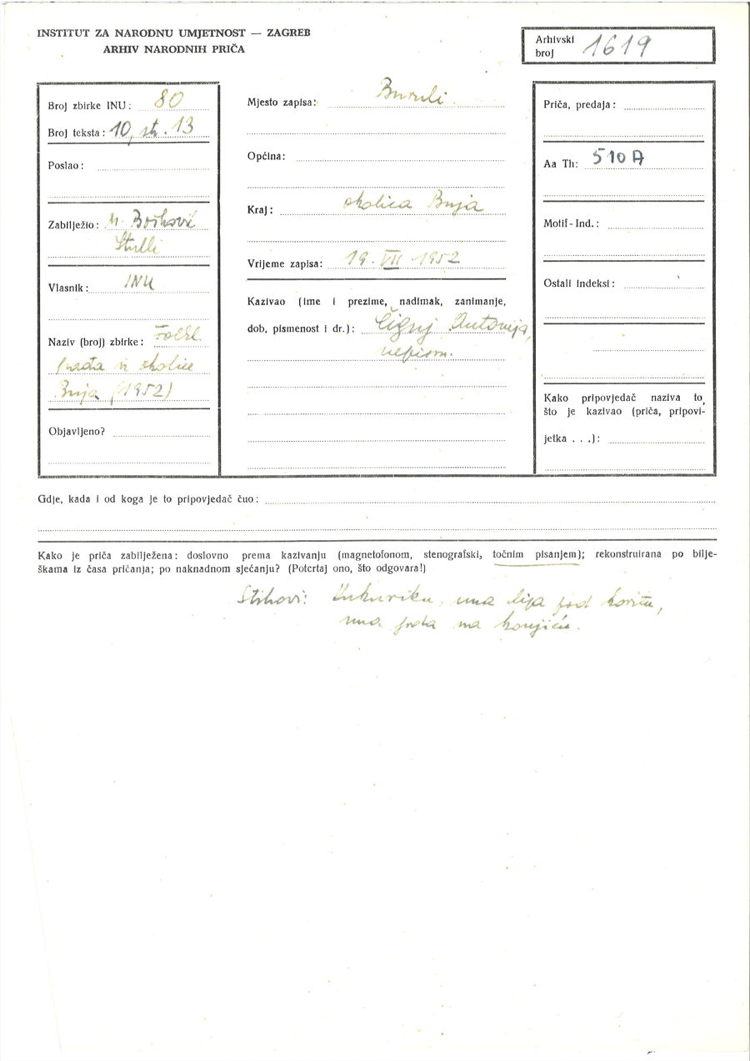 INSTITUT ZA NARODNU UMJETNOST — ZAGREB
ARHIV NARODNIH PRIČA
Arhivski
broj 1619
Broj zbirke INU: 80
Broj teksta: 10, str. 13
Poslao:
Zabilježio: M. Bošković
Stulli
Vlasnik: INU
Naziv (broj) zbirke: Folkl.
građa iz okolice
Buja (1952)
Objavljeno?
Mjesto zapisa: Buruli
Općina:
Kraj: okolica Buja
Vrijeme zapisa: 19. VII 1952
Kazivao (ime i prezime, nadimak, zanimanje,
dob, pismenost i dr.): Antonija,
nepism.
Priča, predaja:
Aa Th: 510 A
Motif-Ind.:
Ostali indeksi:
Kako pripovjedač naziva to,
što je kazivao (priča, pripovi-
jetka . . .):
Gdje, kada i od koga je to pripovjedač čuo:
Kako je priča zabilježena: doslovno prema kazivanju (magnetofonom, stenografski, točnim pisanjem); rekonstruirana po bilje-
škama iz časa pričanja; po naknadnom sjećanju? (Potcrtaj ono, što odgovara!)
Stihovi: Kukuriku, una lipa pod koritu,
una grda na konjiću.